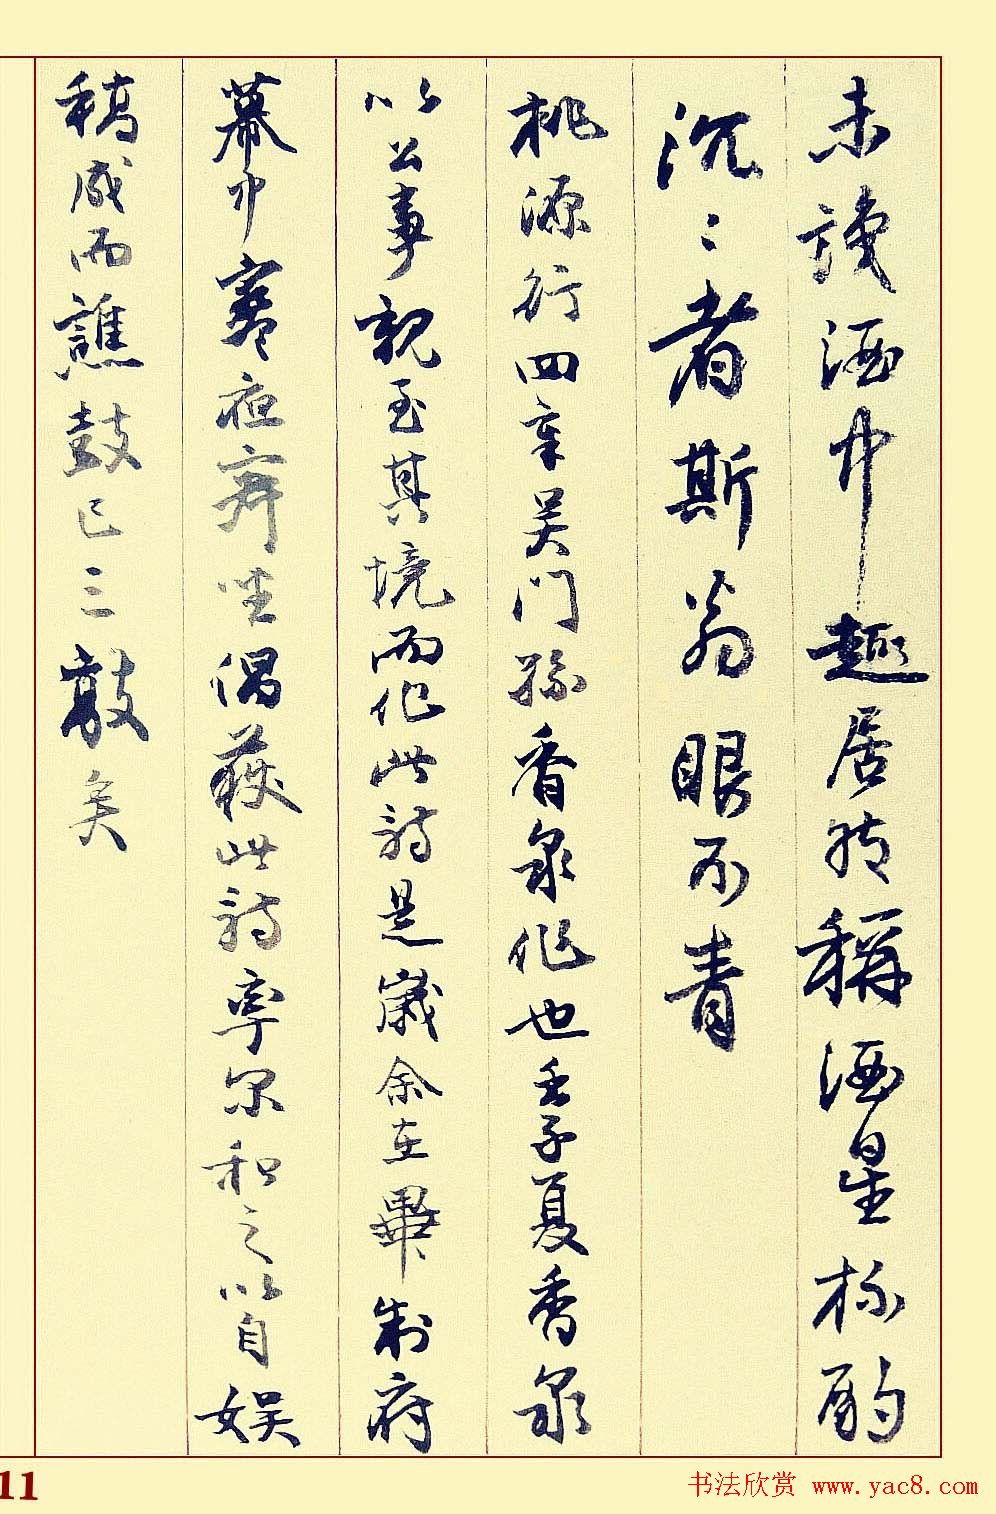 未識酒中趣居然稱酒星杯酌
沉〻者斯翁眼不青
桃源行四章吴门孫香泉作也壬子夏香泉
以公事親至其境而作此詩是歲余在畢制府
幕中寒夜齋坐偶获此詩率尔和之以自娱
稿成而譙鼓已三敲矣
11
书法欣赏 www.yac8.com